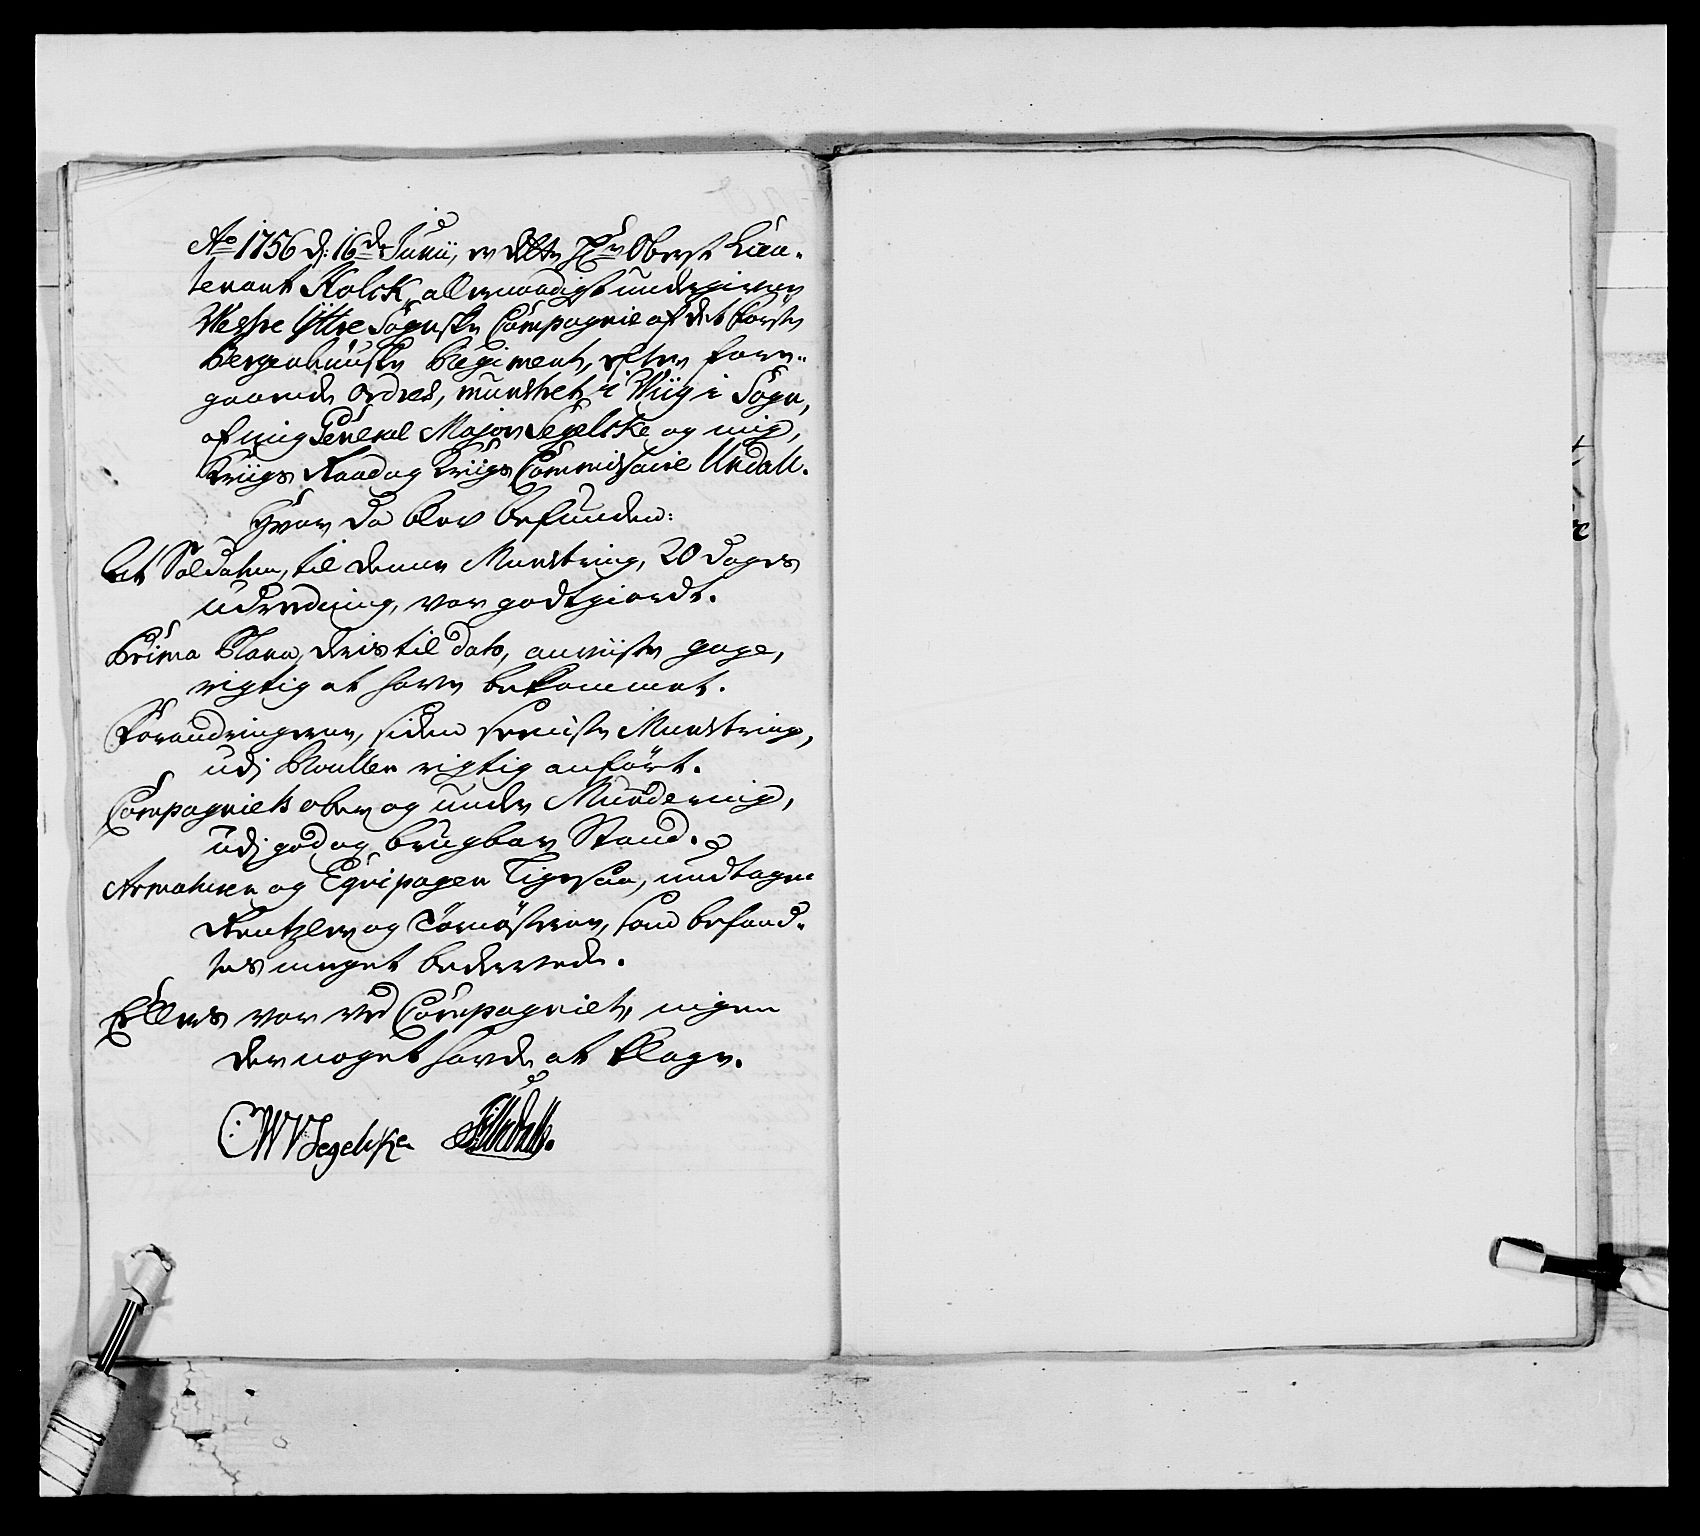 Ao 1756 d: 16de Junii, er dette Hr Oberst Lieu-
tenant Holck allernaadigst undergivne
Westre Yttre Sognske Compagnie af det første
Bergenhuuske Regiment, efter fore-
gaaende Ordres, munstret i Wiig i Sogn,
af mig General Major Segelske og mig,
Kriigs Raad og Kriigs Commissaire Undall.
Hvor da blev befunden:
At Soldaten, til denne Munstring, 20 dages
udredning, var godtgiordt.
Prima Plana, deris til dato, anviiste gage,
rigtig at have bekommet.
Forandringerne, siden seeniste Munstring,
udj Roullen rigtig anført.
Compagniets ober og under Mundering,
udj god og brugbar Stand.
Armaturen og Equipagen Ligesaa, undtagen
Rentzler og Tornøstrer, som befand-
tes meget bedervede.
Ellers var ved Compagniet, ingen
der noget havde at klage.
CWVSegelcke Undall.